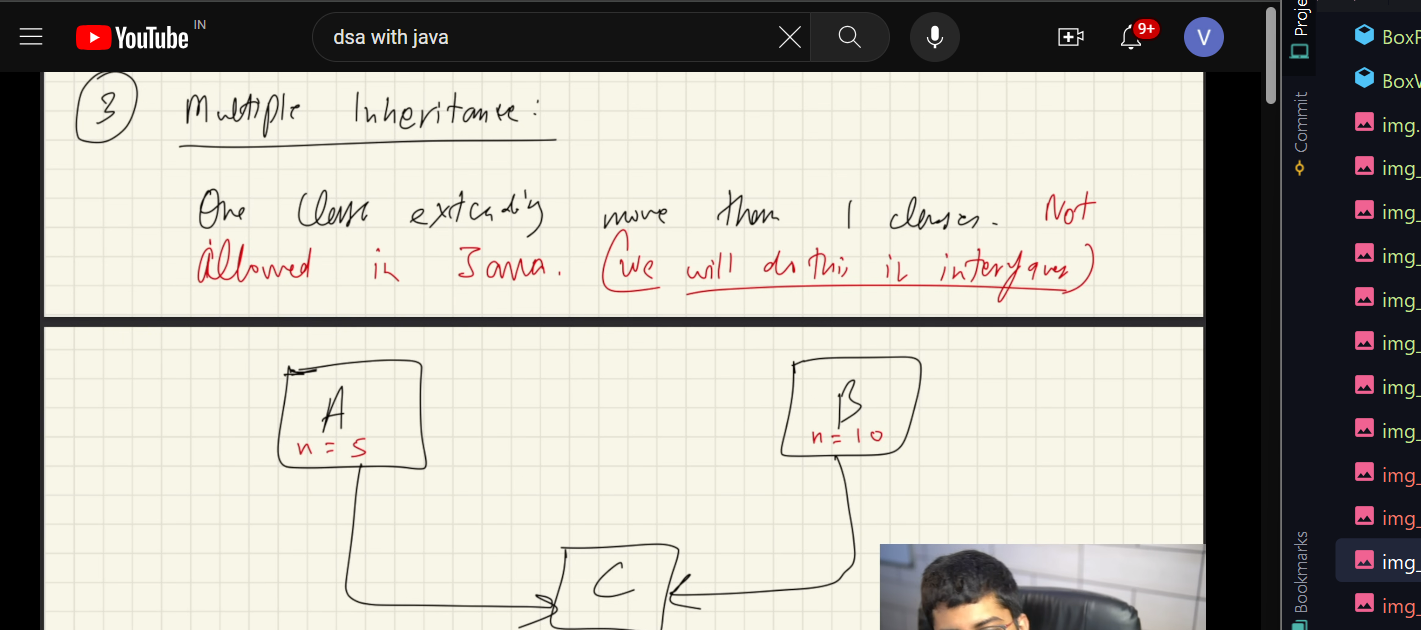 YouTube IN
dsa with java
9+
V
3 Multiple Inheritance:
One Class extending more than 1 classes. Not
allowed in Java. (We will do this in interfaces)
A
n = 5
B
n = 10
C
Proje
Commit
Bookmarks
BoxP
BoxV
img.
img_
img_
img_
img_
img_
img_
img_
img_
img_
img_
img_